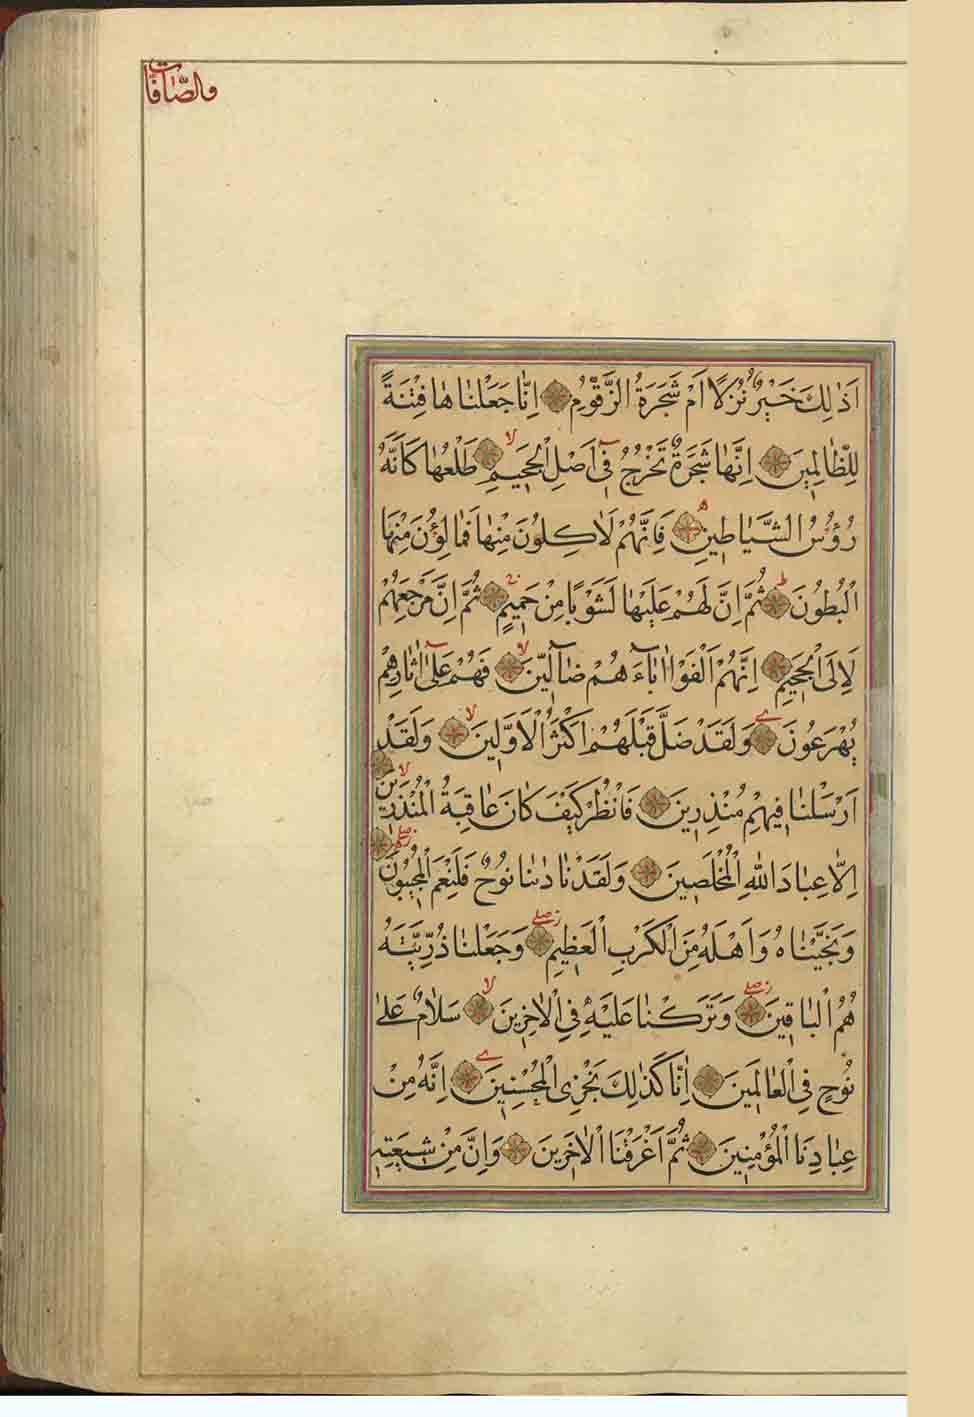 والصّافات
اَذٰلِكَ خَيْرٌ نُزُلًا اَمْ شَجَرَةُ الزَّقّوُمِ اِنّٰا جَعَلْنٰاهٰا فِتْنَةً
لِلظّٰالِمينَ اِنَّهٰا شَجَرَةٌ تَخْرُجُ فىٓ اَصْلِ الْجَحيمِ لا طَلْعُهٰا كَاَنَّهُ
رُؤُسُ الشَّيٰاطينِ ه فَاِنَّهُمْ لَاٰكِلُونَ مِنْهٰا فَمٰالِؤُنَ مِنْهَا
الْبُطُونَ ط ثُمَّ اِنَّ لَهُمْ عَلَيْهٰا لَشَوْبًا مِنْ حَميمٍ ج ثُمَّ اِنَّ مَرْجِعَهُمْ
لَاِلَى الْجَحيمِ اِنَّهُمْ اَلْفَوْا اٰبٰٓاءَهُمْ ضٰٓالّينَ لا فَهُمْ عَلىٰٓ اٰثٰارِهِمْ
يُهْرَعُونَ ے وَلَقَدْ ضَلَّ قَبْلَهُمْ اَكْثَرُ الْاَوَّلينَ لا وَلَقَدْ
اَرْسَلْنٰا فيهِمْ مُنْذِرينَ فَانْظُرْ كَيْفَ كٰانَ عٰاقِبَةُ الْمُنْذَرينَ لا
اِلّٰا عِبٰادَ اللّٰهِ الْمُخْلَصينَ وَلَقَدْ نٰادٰىنٰا نُوحٌ فَلَنِعْمَ الْمُجيبُونَ زصلے
وَنَجَّيْنٰاهُ وَاَهْلَهُ مِنَ الْكَرْبِ الْعَظيمِ زصلے وَجَعَلْنٰا ذُرِّيَّتَهُ
هُمُ الْبٰاقينَ زصلے وَتَرَكْنٰا عَلَيْهِ فِى الْاٰخِرينَ لا سَلٰامٌ عَلىٰ
نُوحٍ فِى الْعٰالَمينَ اِنّٰا كَذٰلِكَ نَجْزِى الْمُحْسِنينَ ے اِنَّهُ مِنْ
عِبٰادِنَا الْمُؤْمِنينَ ثُمَّ اَغْرَقْنَا الْاٰخَرينَ وَاِنَّ مِنْ شيعَتِهِ